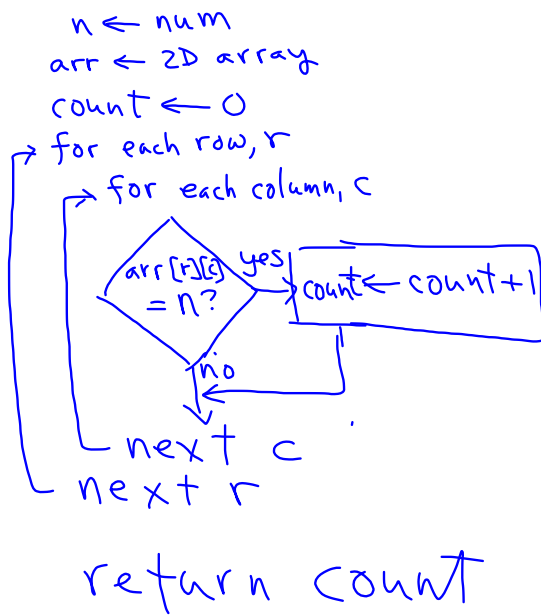 n ← num
arr ← 2D array
count ← 0
for each row, r
for each column, c
arr[r][c] = n?
yes
count ← count + 1
no
next c
next r
return count